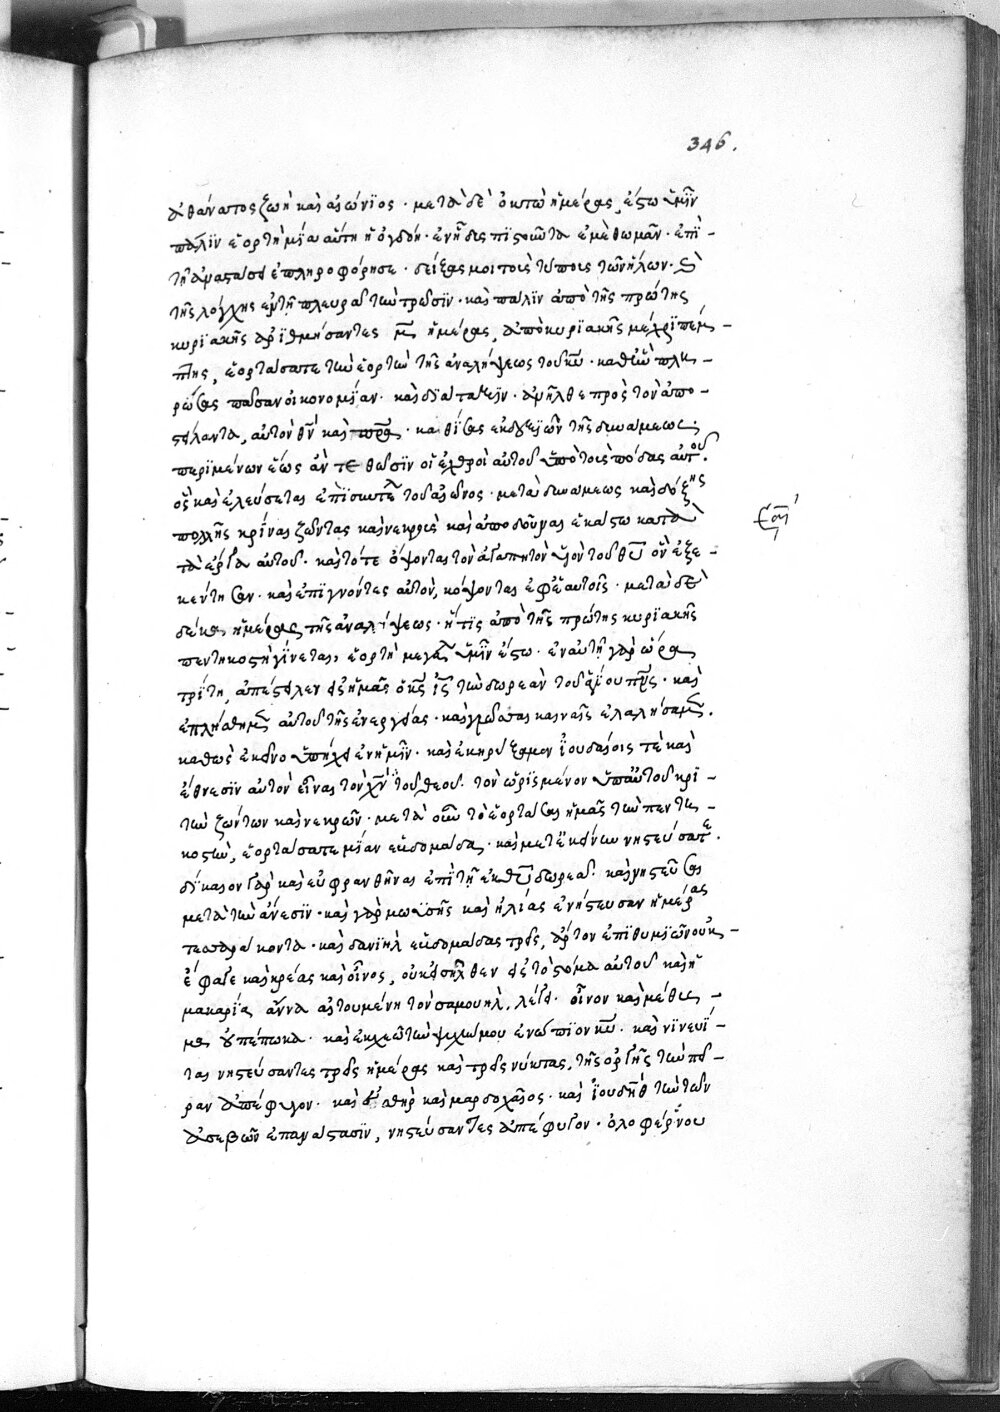 346.
ἀθάνατος ζωὴ καὶ αἰώνϊος · μετὰ δὲ ὀκτὼ ἡμέρας, ἔστω ὑμῖν
πάλϊν ἑορτὴ μία αὕτη ἡ ὀγδόη · ἐν ᾗ
τῇ ἀναστάσει ἐπληροφόρησε · δείξας μοι τοὺς τύπους τῶν ἥλων · καὶ
τῆς λόγχης ἐν τῇ πλευρᾷ τὴν τρῶσϊν · καὶ πάλϊν ἀπὸ τῆς πρώτης
κυρϊακῆς ἀρϊθμήσαντες μ̅ ἡμέρας, ἀπὸ κυρϊακῆς μέχρϊ πέμ-
πτης, ἑορτάσατε τὴν ἑορτὴν τῆς ἀναλήψεως τοῦ κ̅υ̅ · καθ' ἣν πλη-
ρώσας πᾶσαν οἰκονομίαν · καὶ δϊάταξϊν · ἀνῆλθε πρὸς τὸν ἀπο-
στείλαντα, αὐτὸν θ̅ν̅ καὶ π̅ρ̅α̅ · καθίσας ἐκ δεξϊῶν τῆς δυνάμεως
περϊμένων ἕως ἂν τεθῶσϊν οἱ ἐχθροὶ αὐτοῦ ὑπὸ τοὺς πόδας αὐτοῦ ·
ὃς καὶ ἐλεύσεται ἐπὶ συντελ τοῦ αἰῶνος · μετὰ δυνάμεως καὶ δόξης
πολλῆς κρῖναι ζῶντας καὶ νεκρούς καὶ ἀποδοῦναι ἑκάστω κατὰ
τὰ ἔργα αὐτοῦ · καὶ τότε ὄψονται τὸν ἀγαπητὸν υἱὸν τοῦ θ̅υ̅ ὃν ἐξε-
κέντησαν · καὶ ἐπϊγνόντες αὐτὸν, κόψονται ἐφ' ἑαυτοῖς · μετὰ δὲ
δέκα ἡμέρας τῆς ἀναλήψεως · ἥτϊς ἀπὸ τῆς πρώτης κυρϊακῆς
πεντηκοστὴ γίνεται, ἑορτὴ μεγάλ ὑμῖν ἔστω · ἐν αὐτῇ γὰρ ὥρα
τρίτη, ἀπέστειλεν εἰς ἡμᾶς ὁ κ̅ς̅ ι̅ς̅ τὴν δωρεὰν τοῦ ἁγίου π̅ν̅ς̅ · καὶ
ἐπλήσθημεν αὐτοῦ τῆς ἐνεργείας · καὶ γλώσσαις καιναῖς ἐλαλήσαμεν ·
καθὼς ἐκεῖνο ὑπήχει ἐν ἡμῖν · καὶ ἐκηρύξαμεν ἰουδαίοις τὲ καὶ
ἔθνεσϊν αὐτὸν εἶναι τὸν χ̅ν̅ τοῦ θεοῦ · τὸν ὡρϊσμένον ὑπ' αὐτοῦ κρϊ-
τὴν ζώντων καὶ νεκρῶν · μετὰ οὖν τὸ ἑορτάσαι ἡμᾶς τὴν πεντη-
κοστὴν, ἑορτάσατε μίαν ἑβδομάδα · καὶ μετ' ἐκείνην νηστεύσατε ·
δίκαιον γὰρ καὶ εὐφρανθῆναι ἐπὶ τῇ ἐκ θ̅υ̅ δωρεᾷ · καὶ νηστεῦσαι
μετὰ τὴν ἄνεσϊν · καὶ γὰρ μωϋσῆς καὶ ἠλίας ἐνήστευσαν ἡμέρας
τεσσαράκοντα · καὶ δανϊὴλ ἑβδομάδας τρεῖς, ἄρτον ἐπϊθυμϊῶν οὐκ
ἔφαγε καὶ κρέας καὶ οἶνος, οὐκ εἰσῆλθεν εἰς τὸ στόμα αὐτοῦ καὶ ἡ
μακαρία ἄννα αἰτουμένη τὸν σαμουὴλ, λέγει · οἶνον καὶ μέθυσ-
μα οὐ πέπωκα · καὶ ἐκχεῶ τὴν ψυχήν μου ἐνώπϊον κ̅υ̅ · καὶ νϊνευϊ-
ται νηστεύσαντες τρεῖς ἡμέρας καὶ τρεῖς νύκτας, τῆς ὀργῆς τὴν πεῖ-
ραν ἀπέφυγον · καὶ ἐσθὴρ καὶ μαρδοχαῖος · καὶ ἰουδὴθ τὴν τῶν
ἀσεβῶν ἐπανάστασϊν, νηστεύσαντες ἀπέφυγον · ὀλοφέρνου